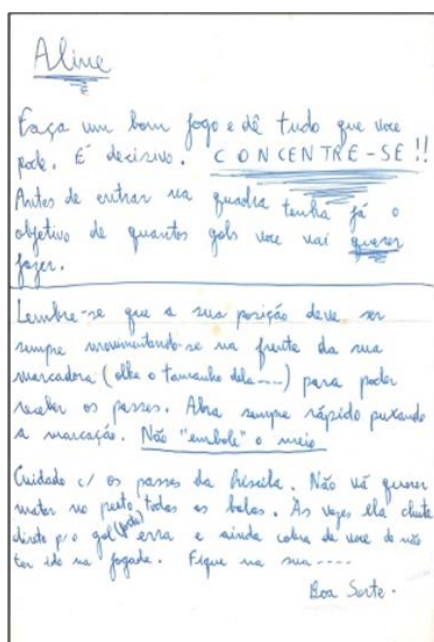 Aline
Faça um bom jogo e dê tudo que voce
pode. É decisivo. CONCENTRE-SE!!
Antes de entrar na quadra tenha já o
objetivo de quantos gols voce vai querer
fazer.
Lembre-se que a sua posição deve ser
sempre movimentando-se na frente da sua
marcadora (olhe o tamanho dela....) para poder
receber os passes. Abra sempre rápido puxando
a marcação. Não "embole" o meio
Cuidado c/ os passes da Priscila. Não vá querer
matar no peito todas as bolas. Às vezes ela chuta
direto p/o gol erra e ainda cobra de voce de não
ter ido na jogada. Fique na sua....
Boa Sorte.